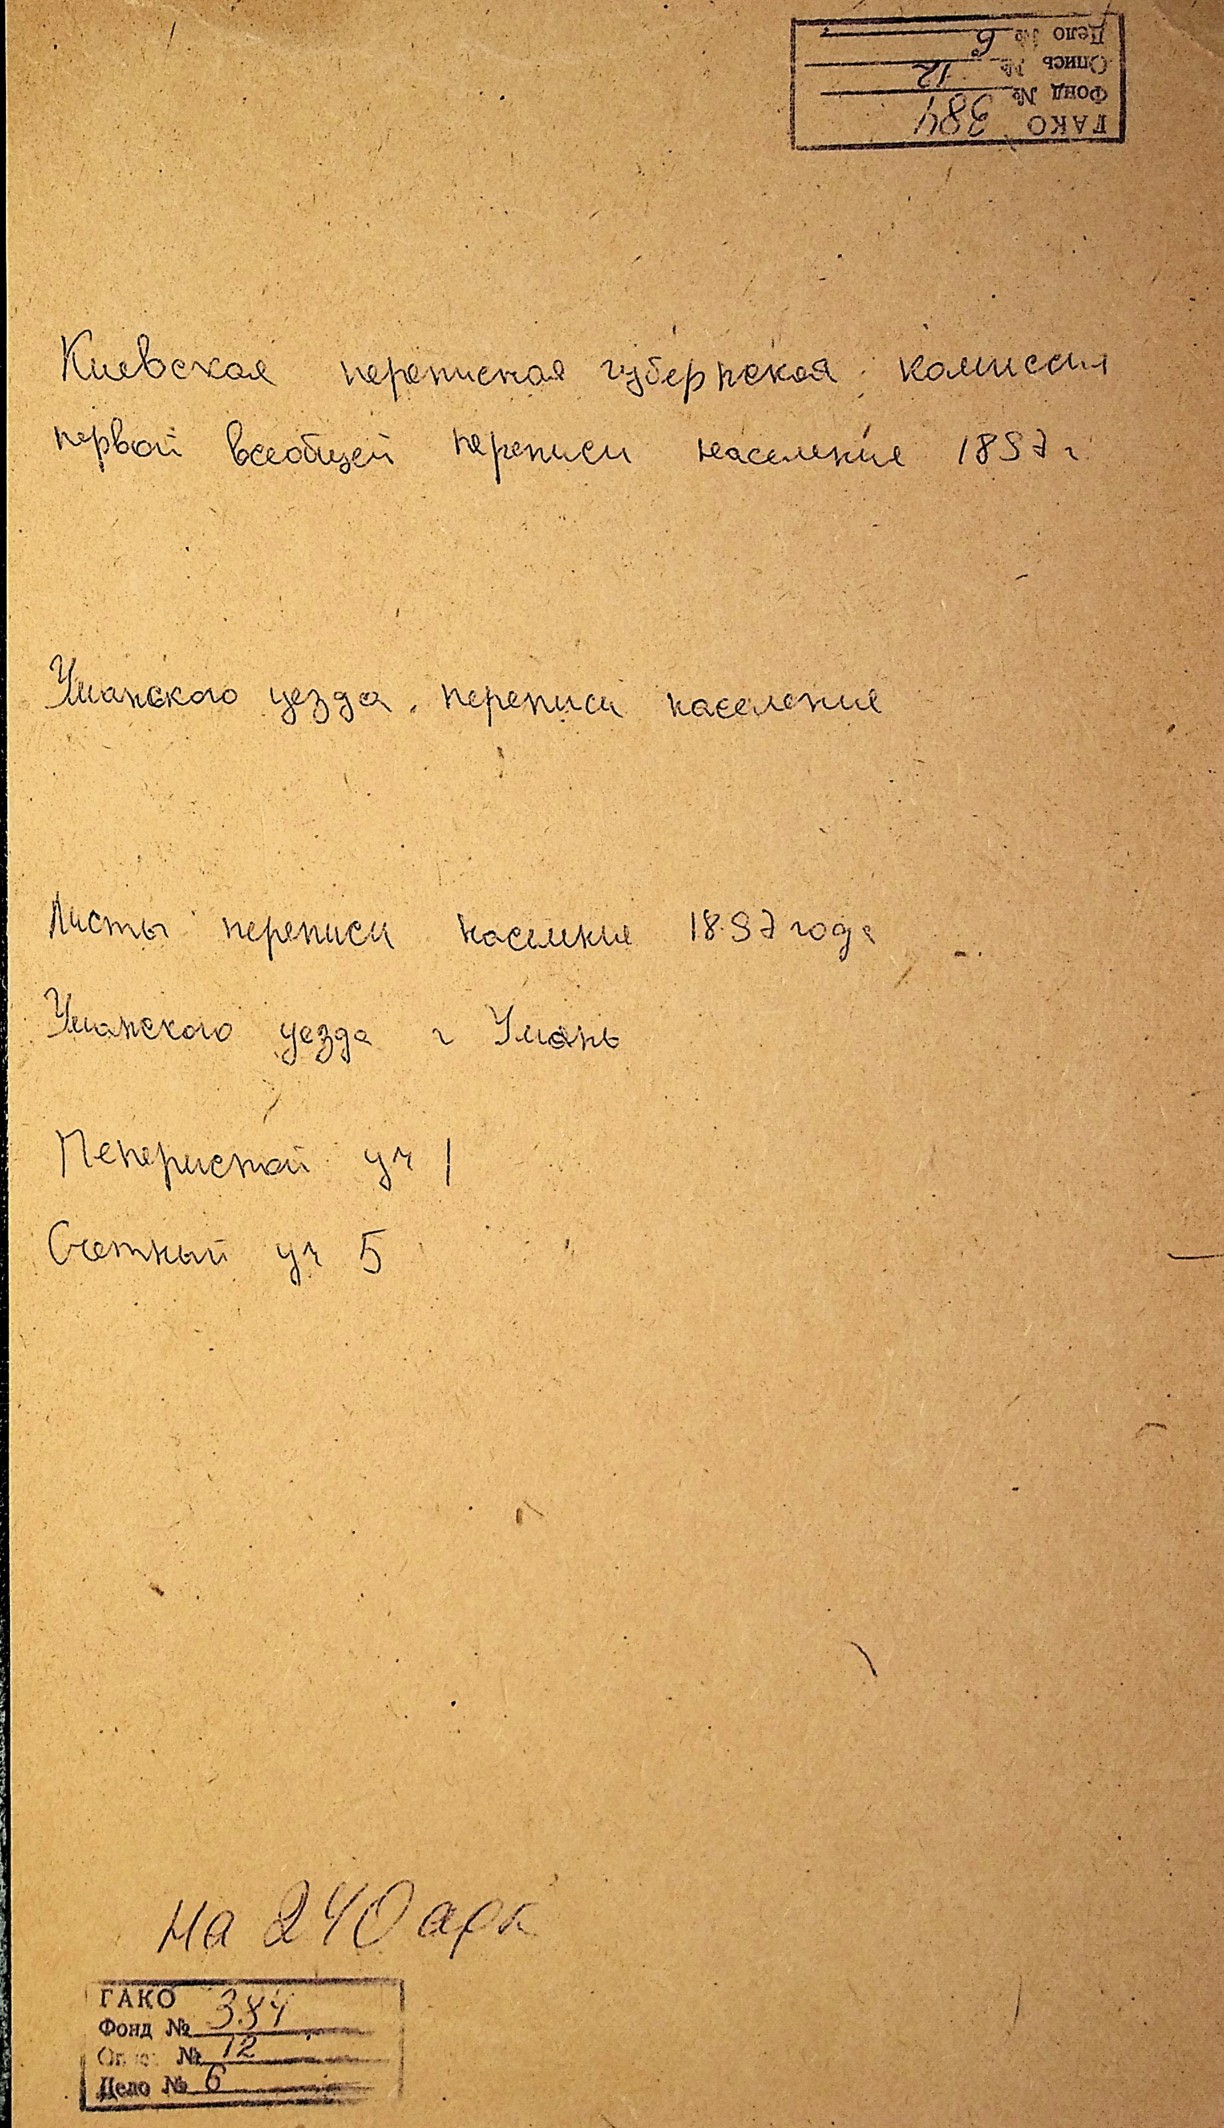 ГАКО
Фонд № 384
Опись № 12
Дело № 6
Киевская переписная губернская комиссия
первой всеобщей переписи населения 1897 г
Уманского уезда, переписи населения
Листы переписи населения 1897 года
Уманского уезда г Умань
Пеперисной уч 1
Счетный уч 5
на 240 арк
ГАКО
Фонд № 384
Опись № 12
Дело № 6